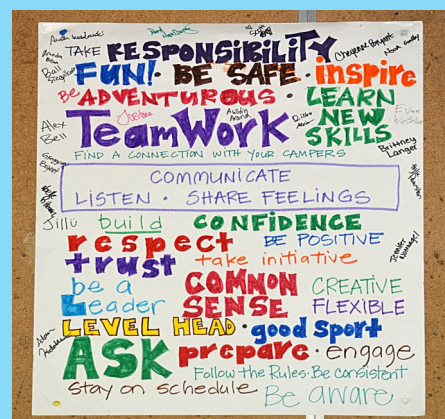 TAKE RESPONSIBILITY
FUN! · BE SAFE · inspire
Be ADVENTUROUS · LEARN
TeamWork NEW
SKILLS
FIND A CONNECTION WITH YOUR CAMPERS
COMMUNICATE
LISTEN · SHARE FEELINGS
build CONFIDENCE
respect BE POSITIVE
trust take initiative
be a Leader
COMMON SENSE
CREATIVE
FLEXIBLE
LEVEL HEAD · good Sport
ASK prepare · engage
Follow the Rules · Be consistent
Stay on schedule Be aware
Alex Bell
Justine
Austin Arand
Brittney Langer
Jillü